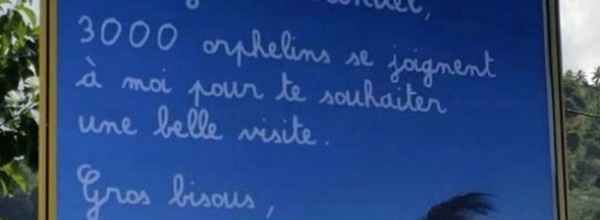 3000 orphelins se joignent
à moi pour te souhaiter
une belle visite.
Gros bisous,